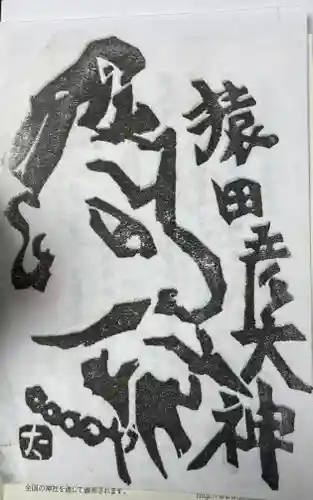 猿田彦大神
全国の神社を通じて頒布されます。